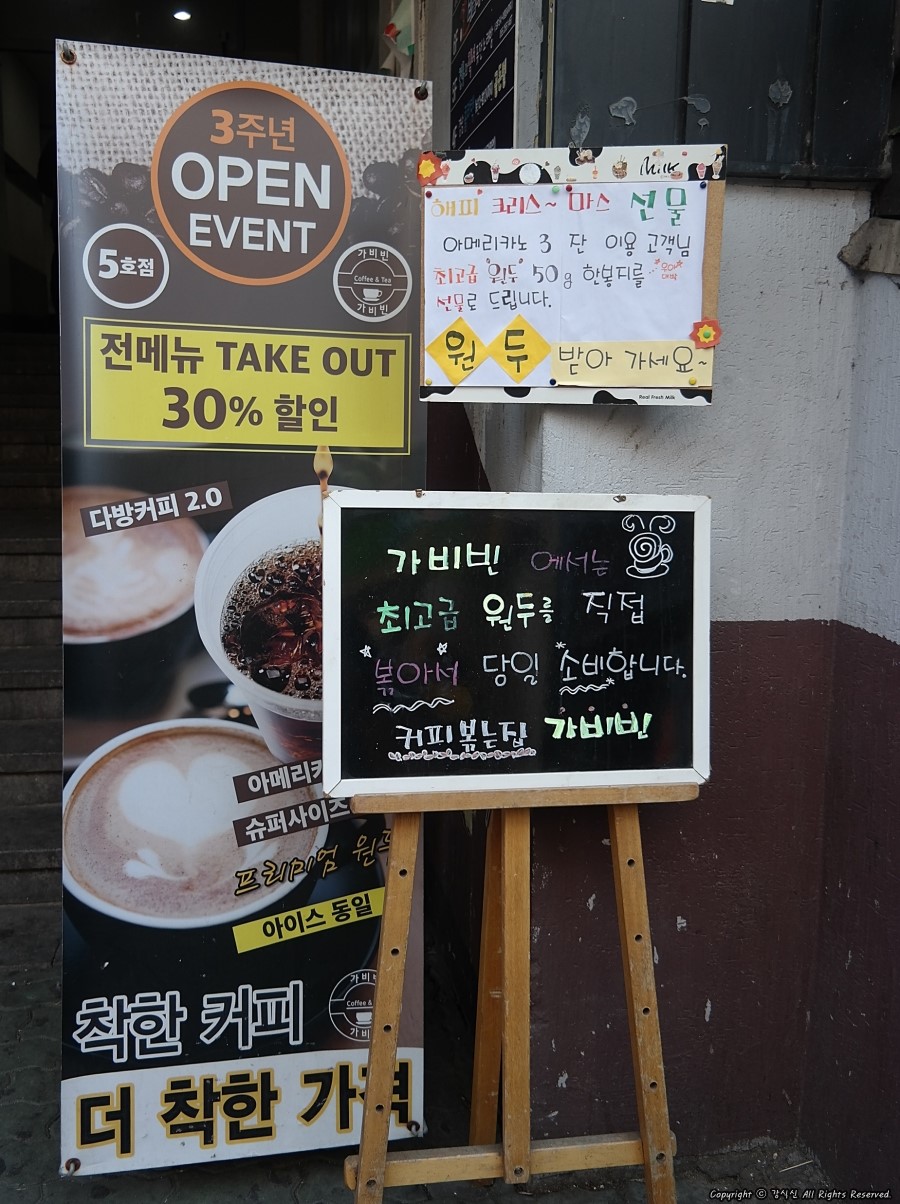 3주년
OPEN
EVENT
5호점
가비빈
Coffee & Tea
가비빈
전메뉴 TAKE OUT
30% 할인
다방커피 2.0
아메리카
슈퍼사이즈
프리미엄 원두
아이스 동일
가비빈
Coffee &
가비
착한 커피
더 착한 가격
MiLK
해피 크리스~ 마스 선물
아메리카노 3 잔 이용 고객님
최고급 "원두" 50g 한봉지를
선물로 드립니다.
원두 받아 가세요~
Real Fresh Milk
가비빈 에서는
최고급 원두를 직접
볶아서 당일 소비합니다.
커피볶는집 가비빈
Copyright ⓒ 감식신 All Rights Reserved.